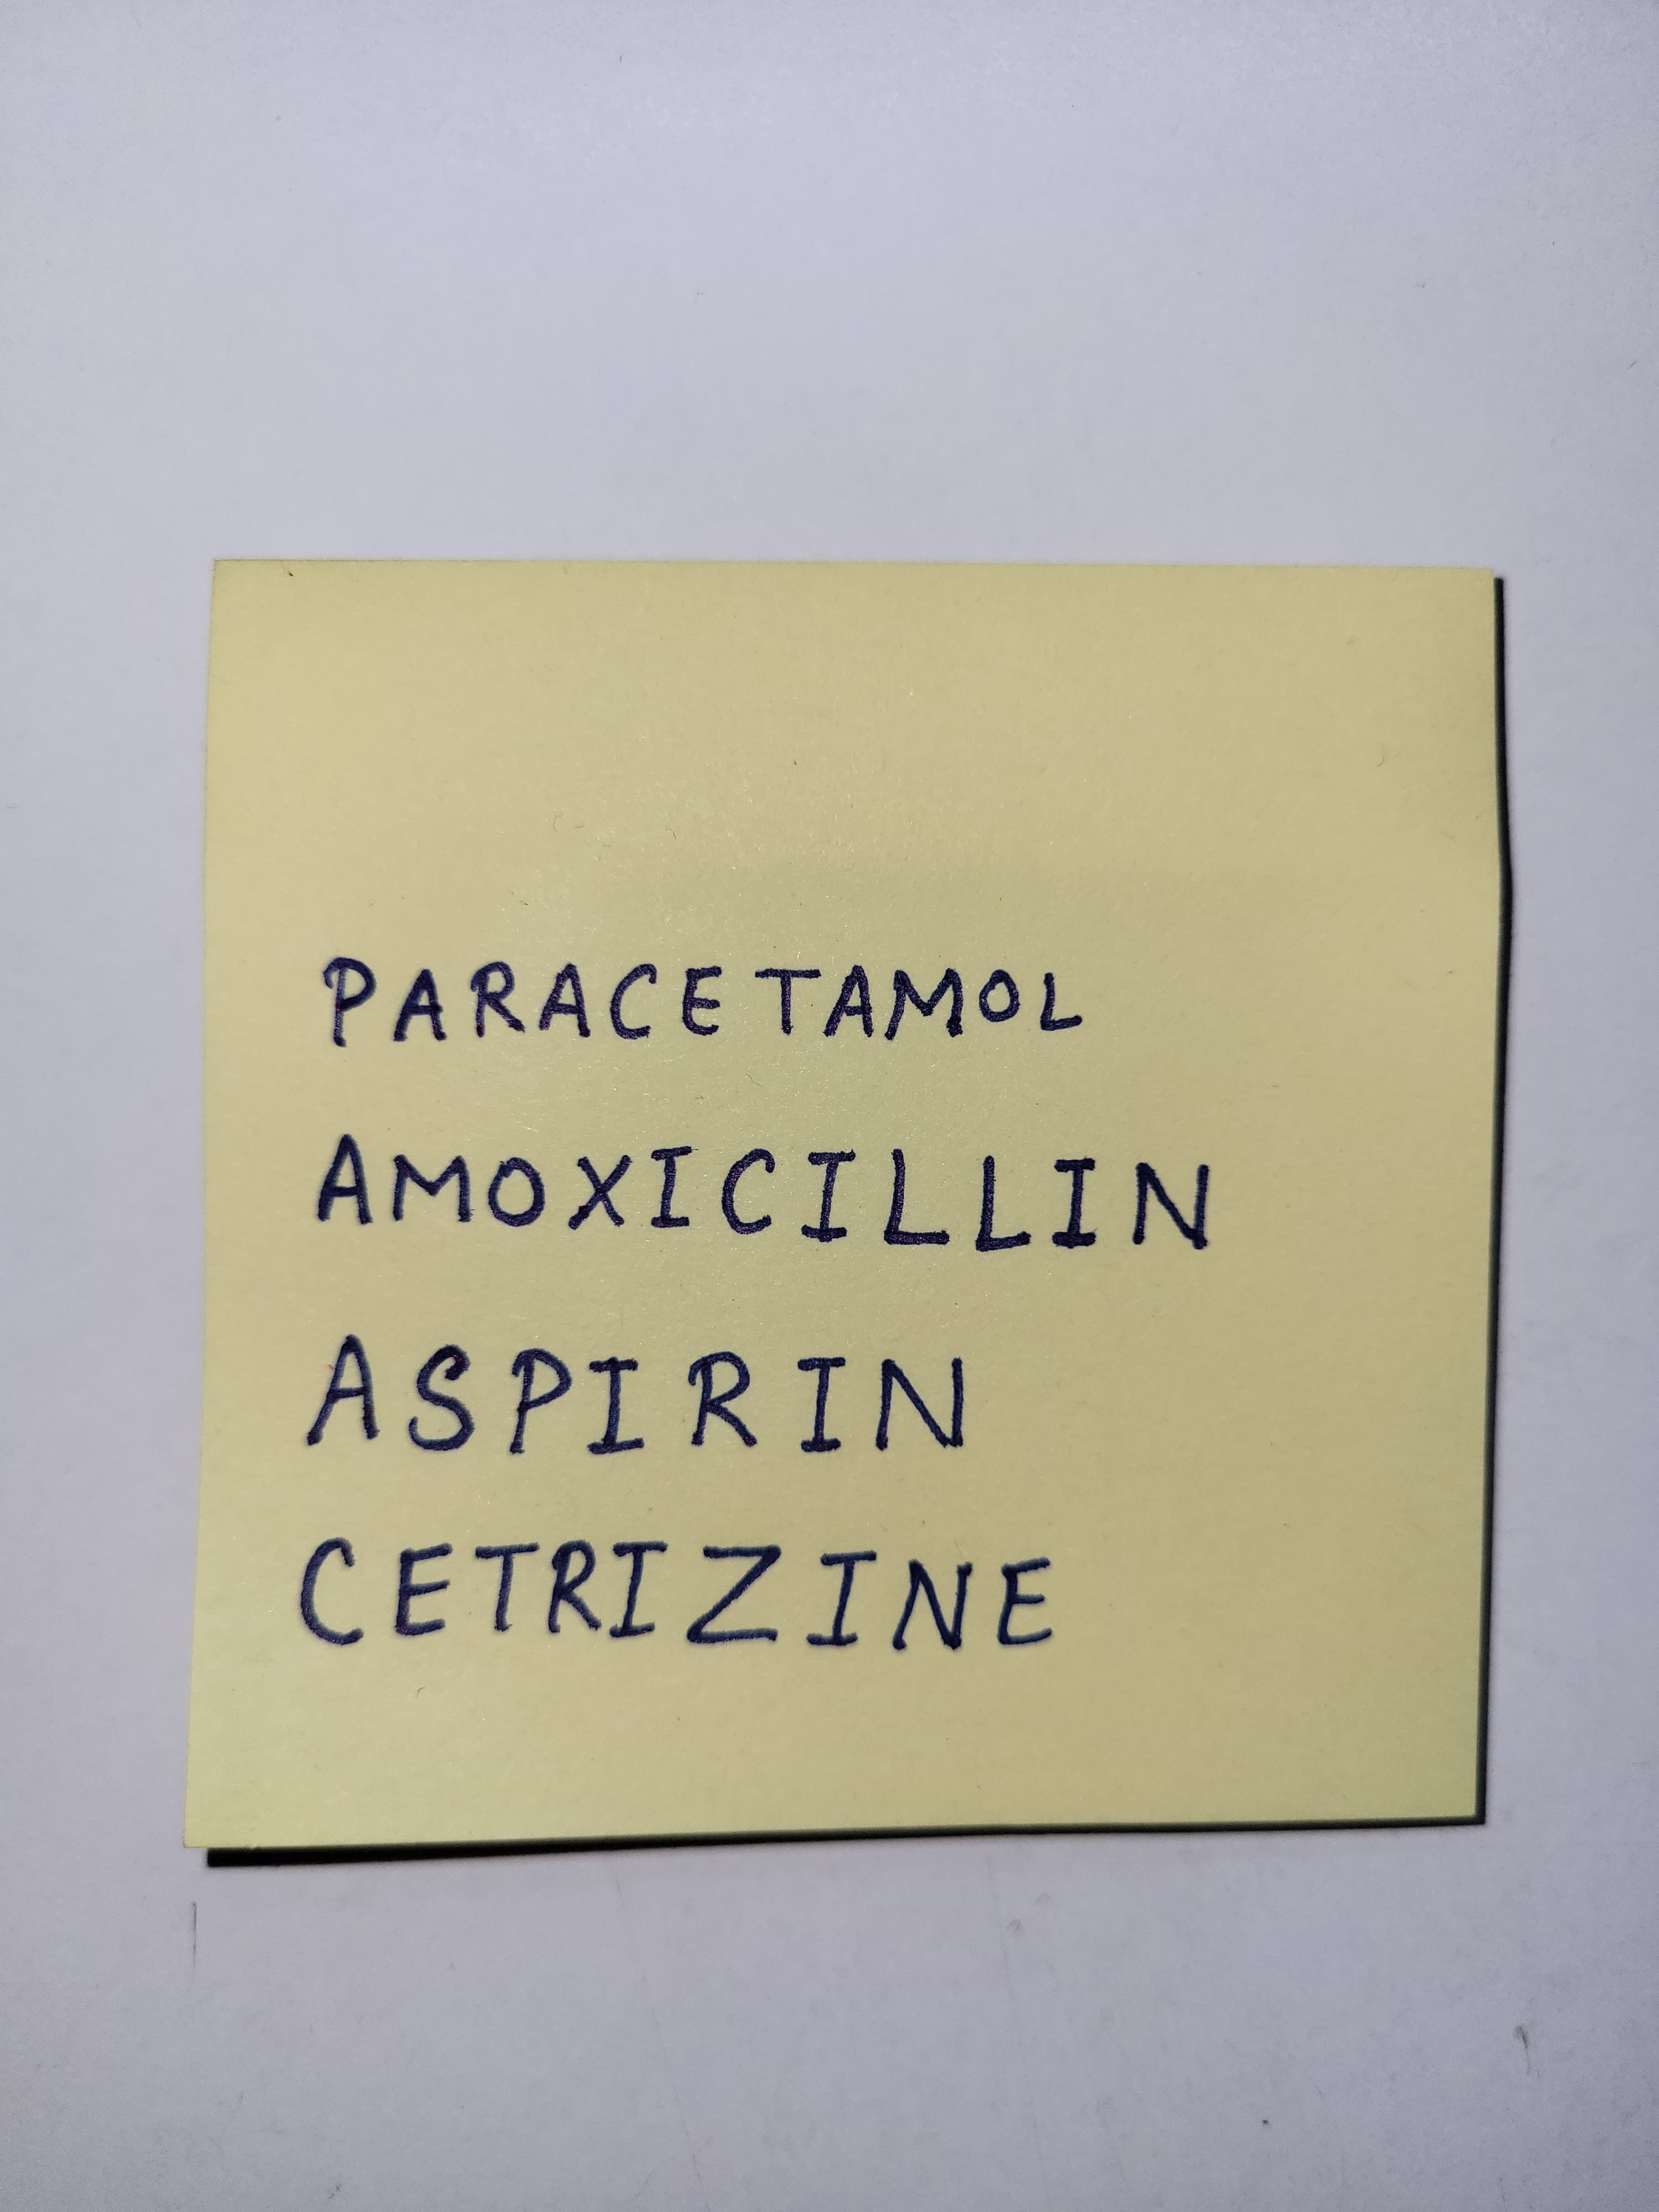 PARACETAMOL
AMOXICILLIN
ASPIRIN
CETRIZINE